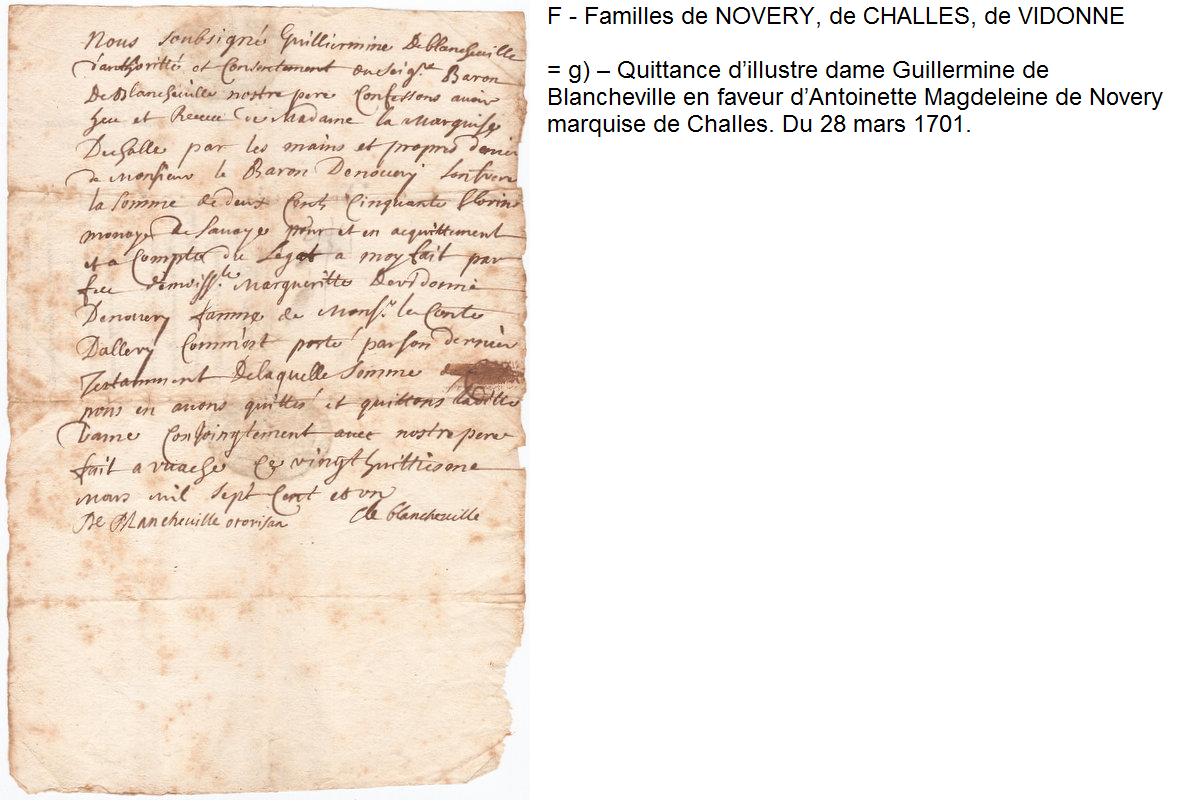 Nous soubsigné Guilliermine Deblancheville
d'authoritté et Consentement du seig.r Baron
De Blancheville nostre pere Confessons avoir
heu et Receu de Madame la Marquise
Dechalle par les mains et propres denier
de Monsieur le Baron Denouery son frere
la somme de deux Cents Cinquante florins
monoye de Sauoye pour et en acquittement
et a Compte du Légat a moy fait par
feu demoiss.lle Margueritte Deuidonne
Denouery famme de Mons.r le Conte
Dallery Comm'est porté par son dernier
Testamment De laquelle somme
nous en auons quitté et quittons laditte
Dame Conjoingtement auec nostre pere
fait a vuache Ce vingt huittiesme
Mars mil sept Cent et un
De Blancheuille otorisan de blancheuille
F - Familles de NOVERY, de CHALLES, de VIDONNE
= g) – Quittance d’illustre dame Guillermine de
Blancheville en faveur d’Antoinette Magdeleine de Novery
marquise de Challes. Du 28 mars 1701.